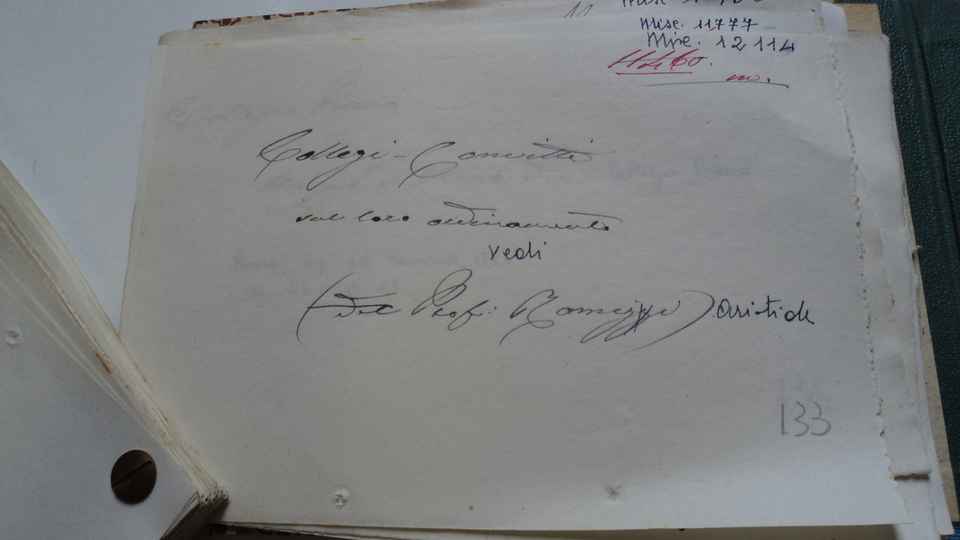 Misc. 11777
Misc. 12114
Collegi-Convitti
sul loro ordinamento
vedi
(del Prof: Romizzi) Aristide
133